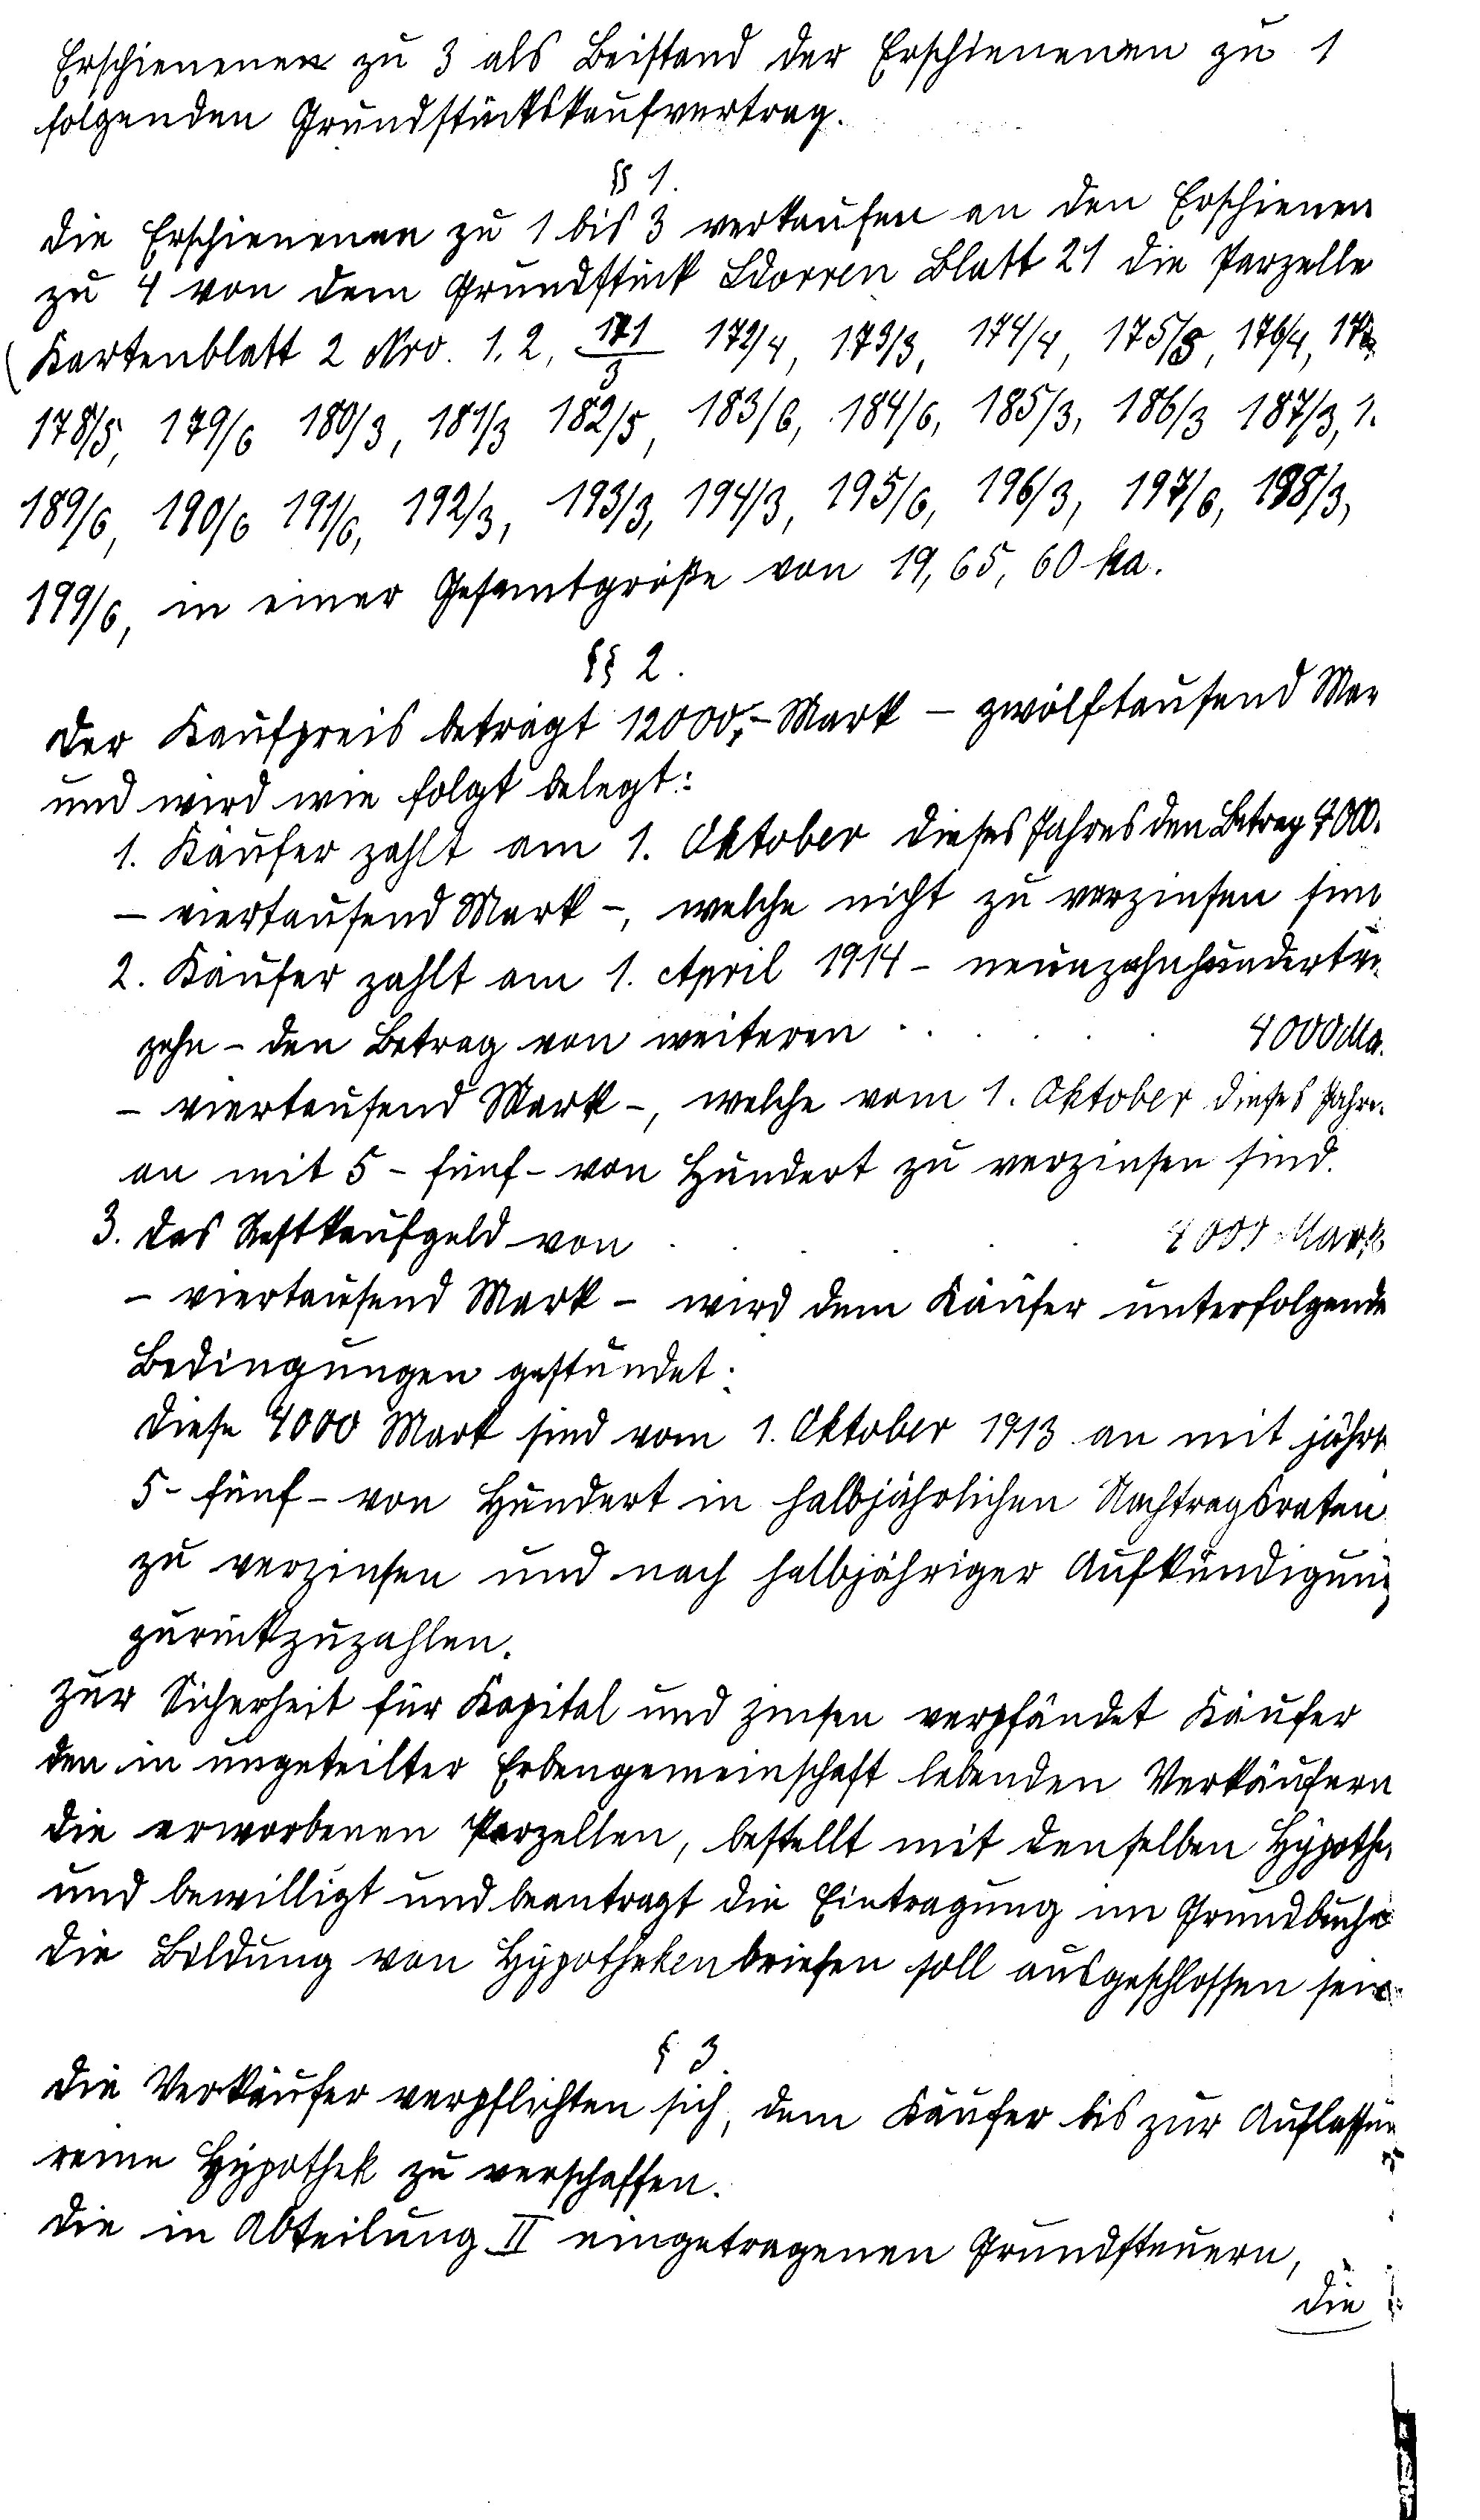 Erschienenen zu 3 als Beistand der Erschienenen zu 1
folgenden Grundstückskaufvertrag.
§§ 1.
Die Erschienenen zu 1 bis 3 verkaufen an den Erschienen
zu 4 von dem Grundstück Blatt 21 die Parzelle
(Kartenblatt 2 Nro. 1, 2, 171/3 172/4, 173/3, 174/4, 175/5, 176/4, 17
178/5, 179/6 180/3, 181/3 182/5, 183/6, 184/6, 185/3, 186/3 187/3, 1.
189/6, 190/6 191/6, 192/3, 193/3, 194/3, 195/6, 196/3, 197/6, 198/3,
199/6, in einer Gesamtgröße von 19,65,60 ha.
§§ 2.
Der Kaufpreis beträgt 12000,- Mark - zwölftausend Mar
und wird wie folgt belegt:
1. Käufer zahlt am 1. Oktober dieses Jahres den Betrag 4000.
- viertausend Mark -, welche nicht zu verzinsen sind
2. Käufer zahlt am 1. April 1914 - neunzehnhundertvi
zehn - den Betrag von weiteren . . . . . 4000 Ma.
- viertausend Mark -, welche vom 1. Oktober dieses Jahre.
an mit 5 - fünf - von Hundert zu verzinsen sind.
3. Das Restkaufgeld von . . . . . 4000 Mark
- viertausend Mark - wird dem Käufer unter folgende
Bedingungen gestundet:
Diese 4000 Mark sind vom 1. Oktober 1913 an mit jährl
5 - fünf - von Hundert in halbjährlichen Nachtragsraten
zu verzinsen und nach halbjähriger Aufkündigung
zurückzuzahlen.
Zur Sicherheit für Kapital und Zinsen verpfändet Käufer
den in ungeteilter Erbengemeinschaft lebenden Verkäufern
die erworbenen Parzellen, bestellt mit denselben Hypothe.
und bewilligt und beantragt die Eintragung im Grundbuche
Die Bildung von Hypothekenbriefen soll ausgeschlossen sein
§ 3.
Die Verkäufer verpflichten sich, dem Käufer bis zur Auflassun
reine Hypothek zu verschaffen.
Die in Abteilung II eingetragenen Grundsteuern,
die